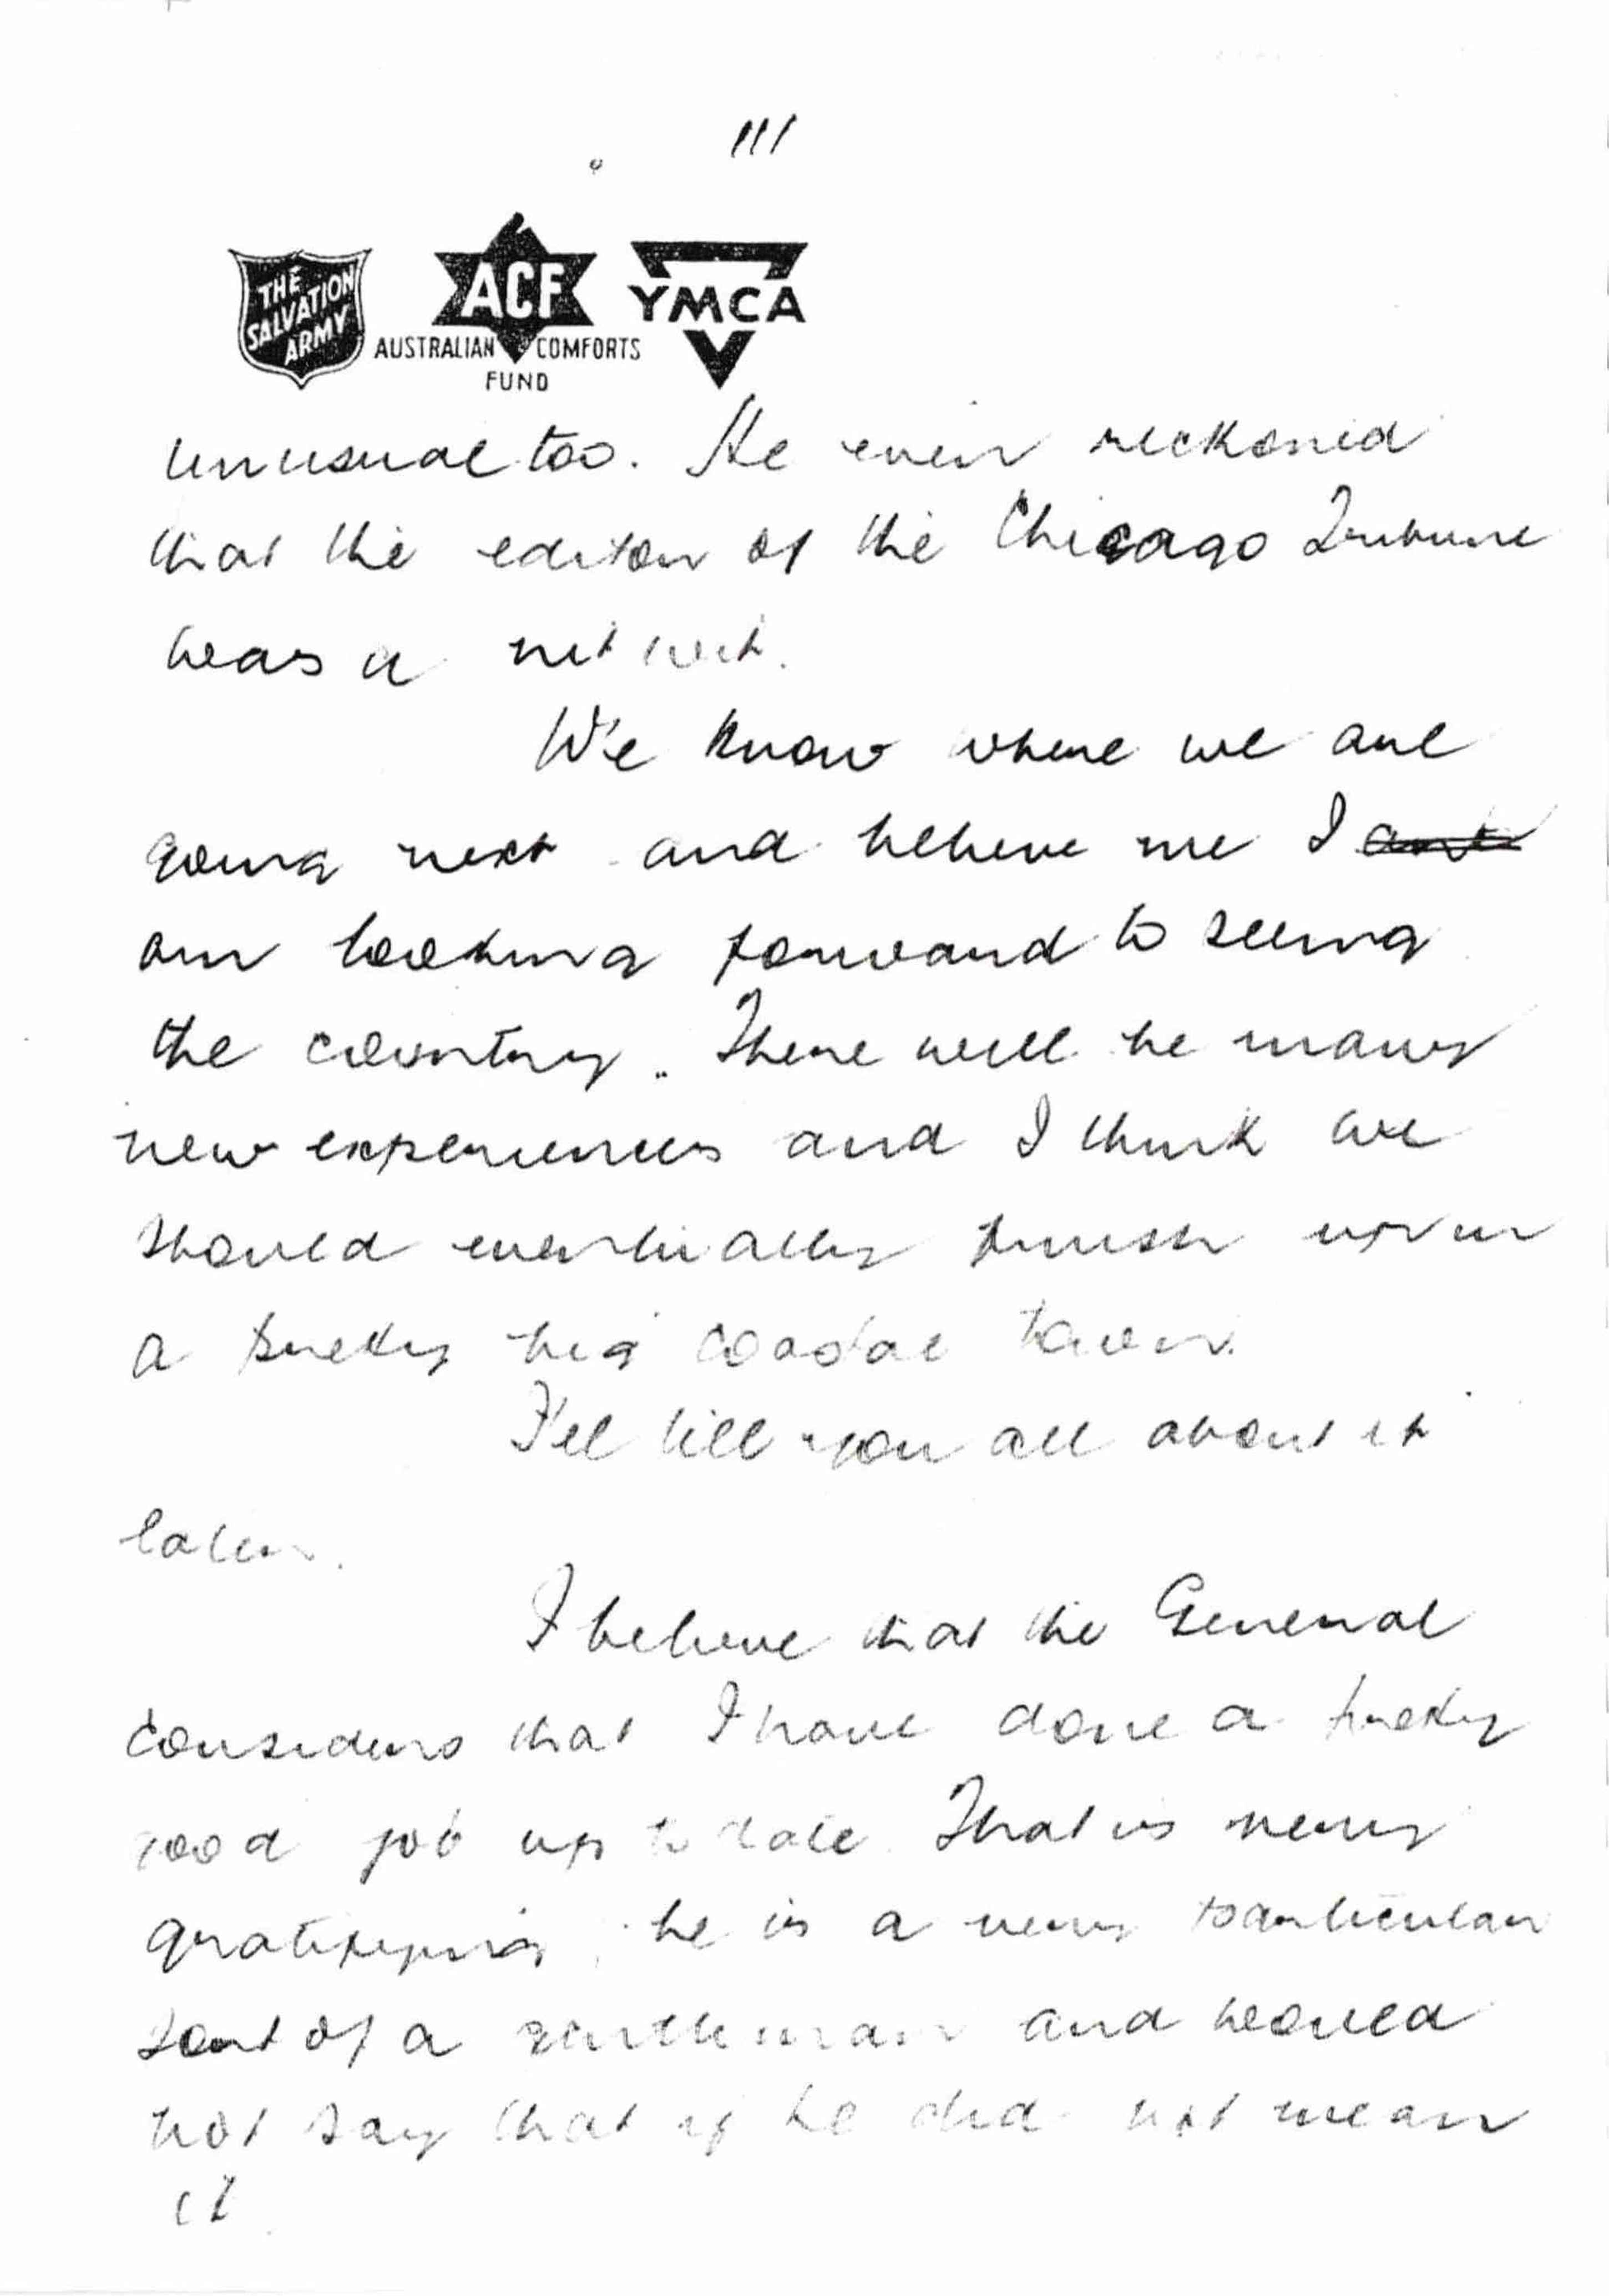 111
THE SALVATION ARMY
ACF
AUSTRALIAN COMFORTS FUND
YMCA
unusual too. He even reckoned
that the editor of the Chicago Tribune
was a nit wit.
We know where we are
going next and believe me I
am looking forward to seeing
the country. There will be many
new experiences and I think we
should eventually finish up in
a pretty big coastal town.
I'll tell you all about it
later.
I believe that the General
considers that I have done a pretty
good job up to date. That is very
gratifying, he is a very particular
sort of a gentleman and would
not say that if he did not mean
it